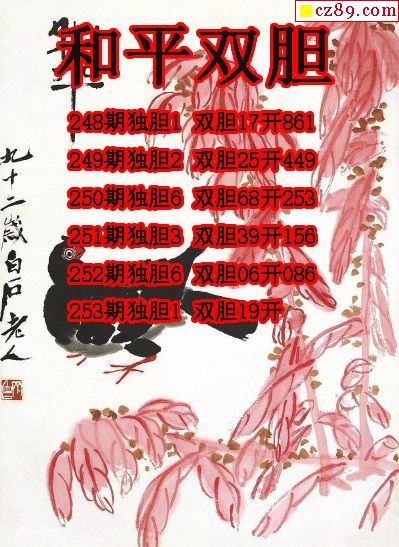 cz89.com
和平双胆
248期独胆1 双胆17开861
249期独胆2 双胆25开449
250期独胆6 双胆68开253
251期独胆3 双胆39开156
252期独胆6 双胆06开086
253期独胆1 双胆19开
九十二岁白石老人